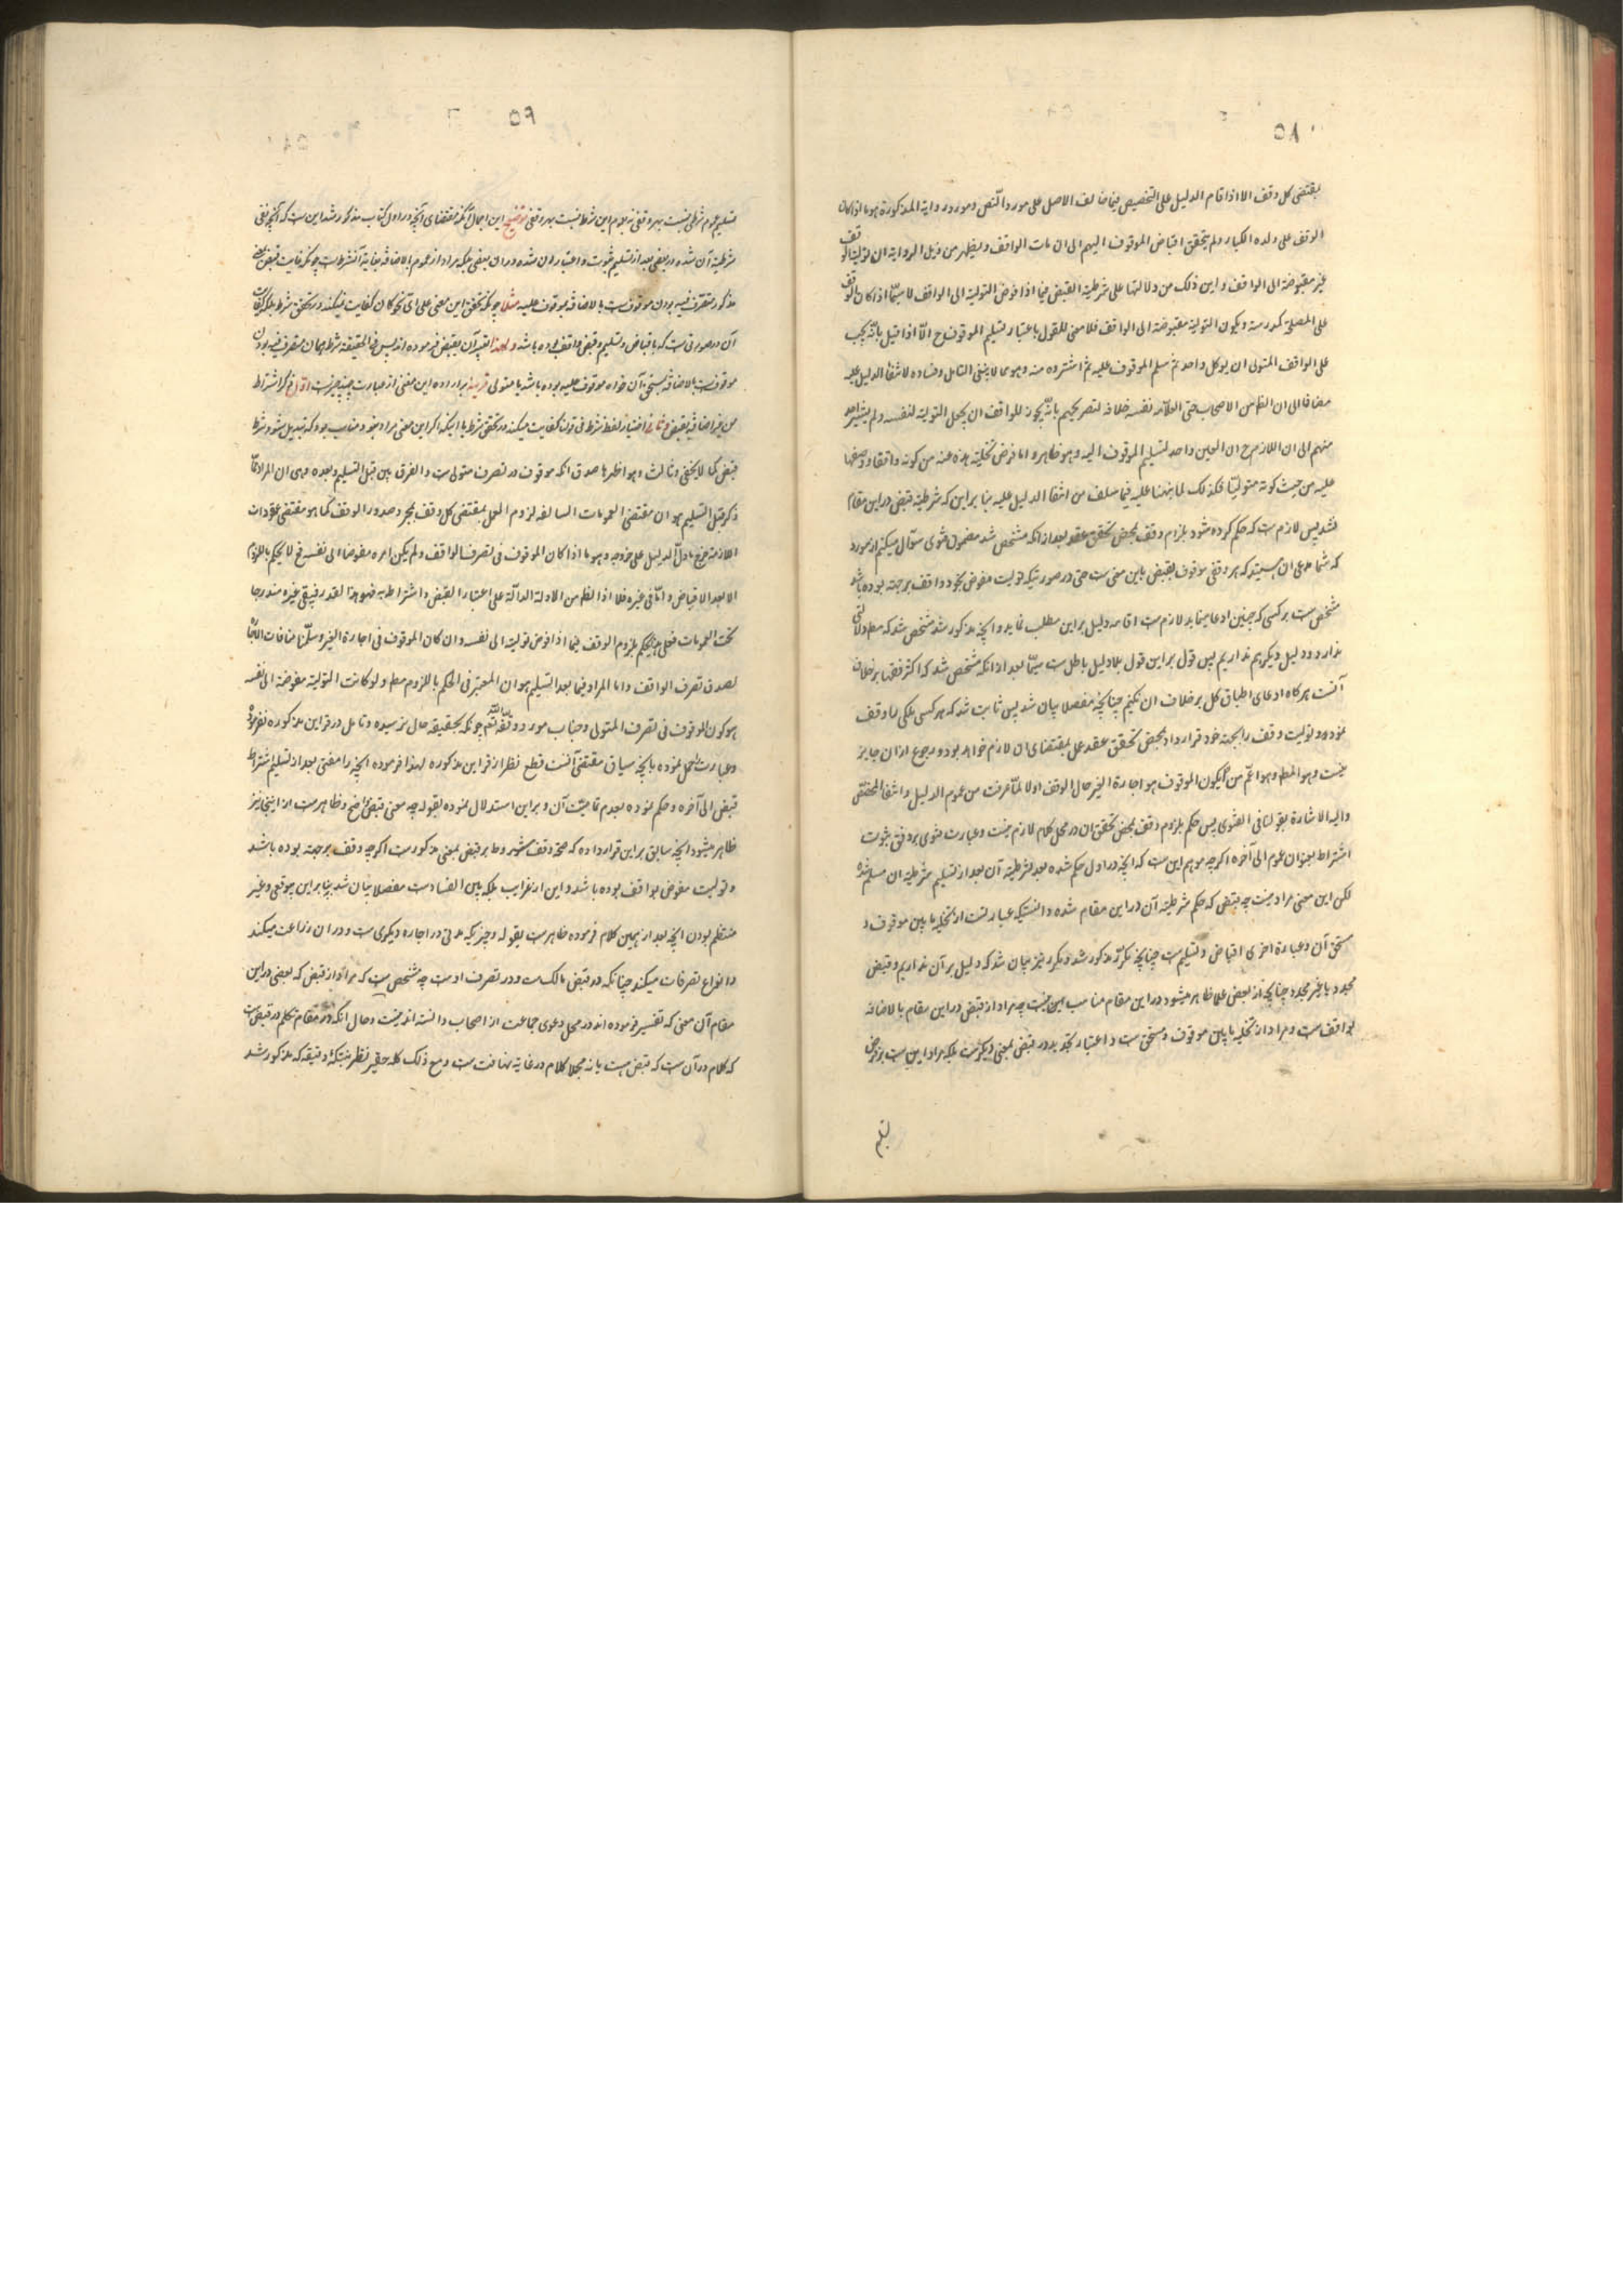 ۵۸
بمقتضی کل وقف الا اذا قام الدلیل علی التخصیص فیما خالف الاصل علی مورد النص و مورد روایة المذکورة هو ما اذا کان
الوقف علی ولده الکبار و لم یتحقق اقباض الموقوف الیهم الی ان مات الواقف و یظهر من ذیل الروایة ان تولیة الوقف
غیر مفوضة الی الواقف و این ذلک من دلالتها علی شرطیة القبض فیما اذا فوض التولیة الی الواقف لا سیما اذا کان الوقف
علی المصلحة کمدرسة و یکون التولیة مفوضة الی الواقف فلا معنی للقول باعتبار تسلیم الموقوف ح الا اذا قیل بانه یجب
علی الواقف المتولی ان یوکل واحد ثم یسلم الموقوف علیه ثم استرده منه و هو مما لا ینبغی التامل و فساده لانتفاء الدلیل علیه
مضافا الی ان الظ من الاصحاب حتی العلامه نفسه خلافه لتصریحهم بانه یجوز للواقف ان یجعل التولیة لنفسه و لم یشیر احد
منهم الی ان اللازم ح ان یعین واحد لتسلیم الموقوف الیه و هو ظاهر و اما فرض تخلیة هذه عنه من کونه واقفا و وضعها
علیه من حیث کونه متولیا فکذلک لما نبهنا علیه فیما سلف من انتفاء الدلیل علیه بنا براین که شرطیة قبض در این مقام
نشد پس لازم است که حکم کرده شود بلزوم وقف بمحض تحقق عقد بعد از انکه مشخص شد مضمون فتوی سؤال میکنم از مورد
که شما مدعی ان هستید که هر وقفی موقوف بقبض باین معنی است حتی در صورتیکه تولیت مفوض بخود واقف بر جهته بوده باشد
مشخص است بر کسی که چنین ادعا مینماید لازم است اقامه دلیل بر این مطلب نماید و انچه مذکور شد مشخص شد که مط دلالتی
ندارد و دلیل دیگر هم نداریم پس قول بر این قول بلا دلیل باطل است سیما بعد از انکه مشخص شد که اکثر فقها بر خلاف
آنست هر گاه ادعای اطباق کل بر خلاف ان نکنیم چنانچه مفصلا بیان شد پس ثابت شد که هر کسی ملکی را وقف
نموده و تولیت وقف را بجهته خود قرار داد بمحض تحقق عقد عمل بمقتضای ان لازم خواهد بود و رجوع از ان جایز
نیست و هو المط و هو اعم من ان یکون الموقوف هو اجارة الغیر حال الوقف اولا لما عرفت من عموم الدلیل و انتفاء المخصص
والیه الاشارة بقولنا فی الفتوی پس حکم بلزوم وقف بمحض تحقق ان در محل کلام لازم نیست و عبارت فتوی بر وفق ثبوت
اشتراط بعنوان عموم الی آخره اگر چه موهم این ست که انچه در اول حکم شده بعد لشرطیة آن بعد از تسلیم شرطیة ان مسلم شده
لکن این معنی مراد نیست چه قبضی که حکم شرطیة آن در این مقام شده دانستیکه عبارتست از تخلیه ما بین موقوف و
مستحق آن و عبارة اخری اقباض و تسلیم است چنانچه مکرر مذکور شد و مکرر نیز بیان شد که دلیل بر آن نداریم و قبض
مجرد یا غیر مجرد چنانچه از بعض علما ظاهر میشود در این مقام مناسب این نیست چه مراد از قبض در این مقام بالاضافه
بواقف ست و مراد از تخلیه ما بین موقوف و مستحق ست و اعتبار تجدید در قبض بمعنی دیگرست بلکه مراد این ست بر فرض
تسلیم
۵۹
تسلیم عموم شرطی نیست بهر وقفی نه عموم این شرط نیست بهر وقفی توضیح این اجمال آنکه مقتضای آنچه در اول کتاب مذکور شد این ست که آنچه نفی
شرطیة آن شده در نفی بعد از تسلیم ثبوت و اعتبار ان شده در ان نفی بلکه مراد از عموم بالاضافه بغایة آنشرط است چونکه غایت قبض
مذکور متصرف فیه بودن موقوف ست بالاضافه بموقوف علیه مثلا چونکه تحقق این معنی علی ای نحو کان کفایت نمیکند در تحقق شرط بلکه کفایت
آن در صورتی ست که باقباض و تسلیم و قبض واقف بوده باشد و لهذا تعبیر آن بقبض فرموده اند پس فی الحقیقه شرط همان متصرف فیه بودن
موقوفست بالاضافه بمستحق آن خواه موقوف علیه بوده باشد یا متولی قرینه بر اراده این معنی از عبارت چند چیزست اول ذکر اشتراط
من غیر اضافه بقبض و ثانی اختیار لفظ شرط فی قولنا کفایت میکند در تحقق شرط با اینکه اگر این معنی مراد نبود مناسب بود که تبدیل شود شرط
قبض کما لا یخفی و ثالث و هو اظهرها صدق انکه موقوف در تصرف متولی ست و الفرق بین قبل التسلیم و بعده وهی ان المراد مما
ذکر قبل التسلیم هو ان مقتضی العمومات السالفه لزوم العمل بمقتضی کل وقف بمجرد صدور الوقف کما هو مقتضی عقودات
اللازمة خرج ما دل الدلیل علی خروجه و هو ما اذا کان الموقوف فی تصرف الواقف و لم یکن امره مفوضا الی نفسه فح لا یحکم باللزوم
الا بعد الاقباض و اما فی غیره فلا اذ الظ من الادلة الدالة علی اعتبار القبض و اشتراطه فهو هذا القدر فیبقی غیره مندرجا
تحت العمومات فعلی هذا یحکم بلزوم الوقف فیما اذا فوض تولیته الی نفسه و ان کان الموقوف فی اجارة الغیر و سلمنا منافات الاجارة
لصدق تصرف الواقف و اما المراد فیما بعد التسلیم هو ان المعتبر فی الحکم باللزوم مط و لو کانت التولیة مفوضة الی نفسه
هو کون الموقوف فی تصرف المتولی و جناب مورد وفقه الله تعم چونکه بحقیقه حال نرسیده و تامل در قراین مذکوره نفرموده
و عبارت را حمل نموده بانچه سیاق مقتضی آنست قطع نظر از قراین مذکوره لهذا فرموده انچه را مفتی بعد از تسلیم اشتراط
قبض الی آخره و حکم نموده بعدم تمامیت آن و بر این استدلال نموده بقوله چه معنی قبض واضح و ظاهر ست از اینجا نیز
ظاهر میشود انچه سابق بر این قرار داده که صحة وقف مشروط بر قبض بمعنی مذکور ست اگر چه وقف بر جهته بوده باشد
و تولیت مفوض بواقف بوده باشد و این از غرایب بلکه بین الفساد ست مفصلا بیان شد بنا بر این بوقعی و غیر
منتظم بودن انچه بعد از همین کلام فرموده ظاهر ست بقوله و چیزیکه مدتی در اجارة دیگری ست و در ان زراعت میکند
و انواع تصرفات میکند چنانکه در قبض مالک ست و در تصرف اوست چه مشخص ست که مراد از قبض که بعضی در این
مقام آن معنی که تفسیر فرموده اند در محل دعوی جماعت از اصحاب دانسته اند نیست و حال انکه در مقام تکلم در قبض ست
که کلام در آن ست که قبض هست یا نه مجملا کلام در غایة متهافت ست و مع ذلک کله حقیر نظر بنکته دقیقه که مذکور شد